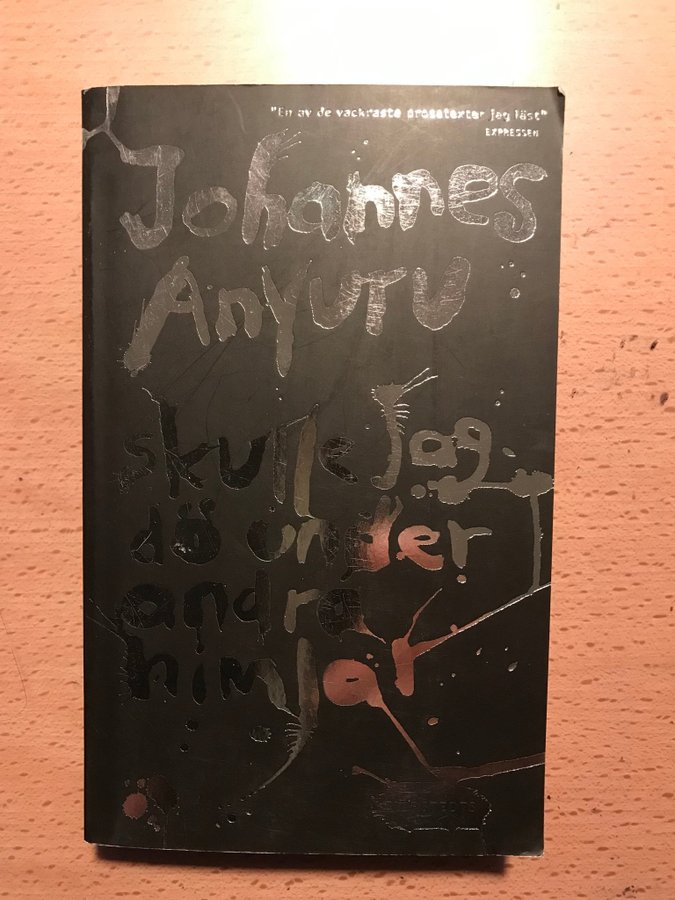 "En av de vackraste prosatexter jag läst"
EXPRESSEN
Johannes
Anyuru
skulle jag
dö under
andra
himlar